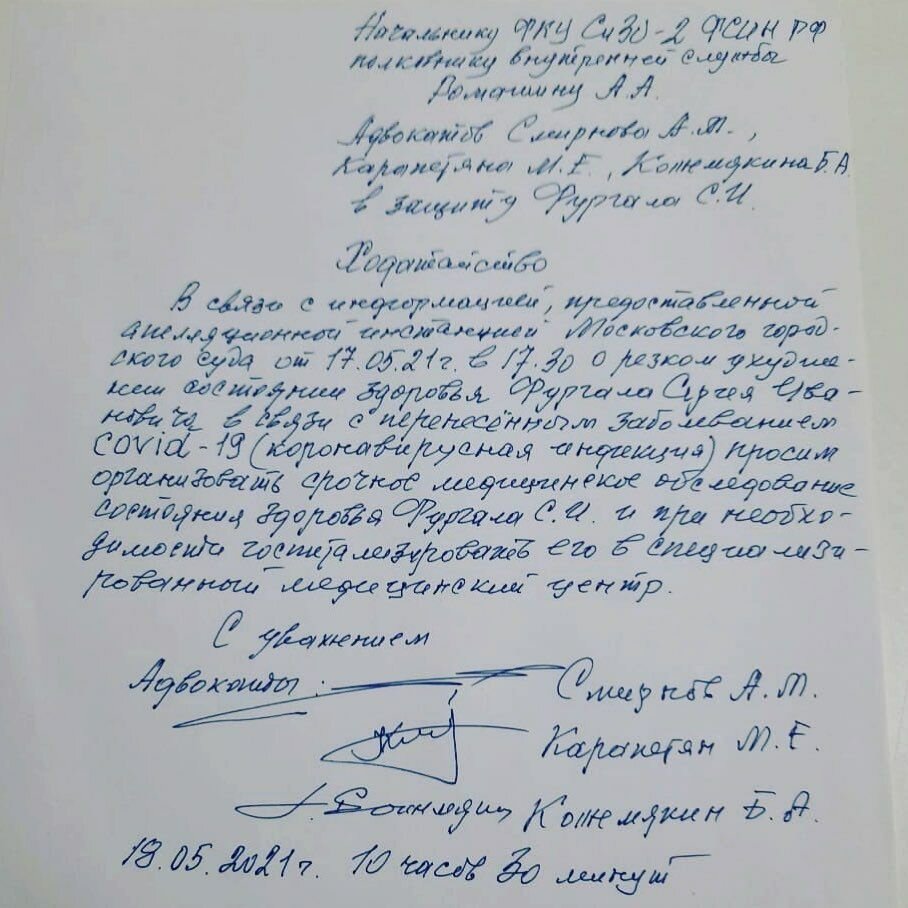 Начальнику ФКУ СиЗО-2 ФСИН РФ
полковнику внутренней службы
Ромашину А.А.
Адвокатов Смирнова А.М.,
Карапетяна М.Е., Кожемякина Б.А.
в защиту Фургала С.И.
Ходатайство
В связи с информацией, предоставленной
апелляционной инстанцией Московского город-
ского суда от 17.05.21г. в 17.30 о резком ухудше-
нии состоянии здоровья Фургала Сергея Ива-
новича в связи с перенесённым заболеванием
covid-19 (коронавирусная инфекция) просим
организовать срочное медицинское обследование
состояния здоровья Фургала С.И. и при необхо-
димости госпитализировать его в специализи-
рованный медицинский центр.
С уважением
Адвокаты: Смирнов А.М.
Карапетян М.Е.
Кожемякин Б.А.
18.05.2021г. 10 часов 30 минут